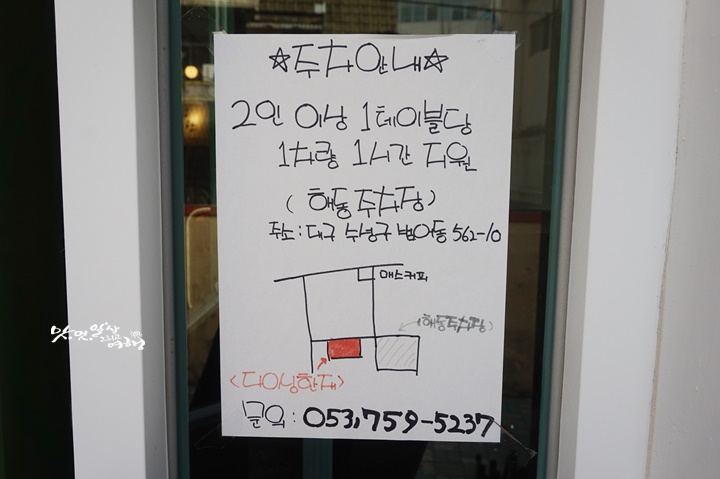 ☆주차안내☆
2인 이상 1테이블당
1차량 1시간 지원
(해동주차장)
주소 : 대구 수성구 범어동 562-10
매스커피
(해동주차장)
<다이닝한재>
문의 : 053,759-5237
맛,멋,알싸
그리고
여행